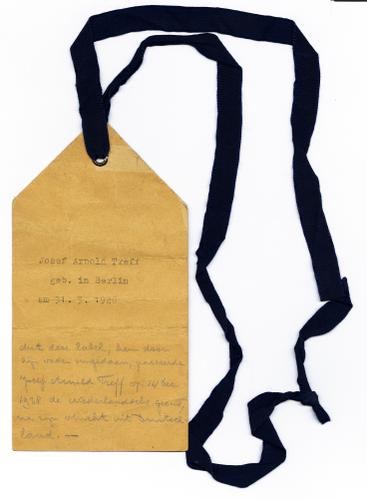 Josef Arnold Treff
geb. in Berlin
am 31. 3. 1928
Met dit label, hem door
zijn vader omgedaan, passeerde
Josef Arnold Treff op 14 Dec
1938 de Nederlandsche grens,
na zijn vlucht uit Duitsch-
land. —